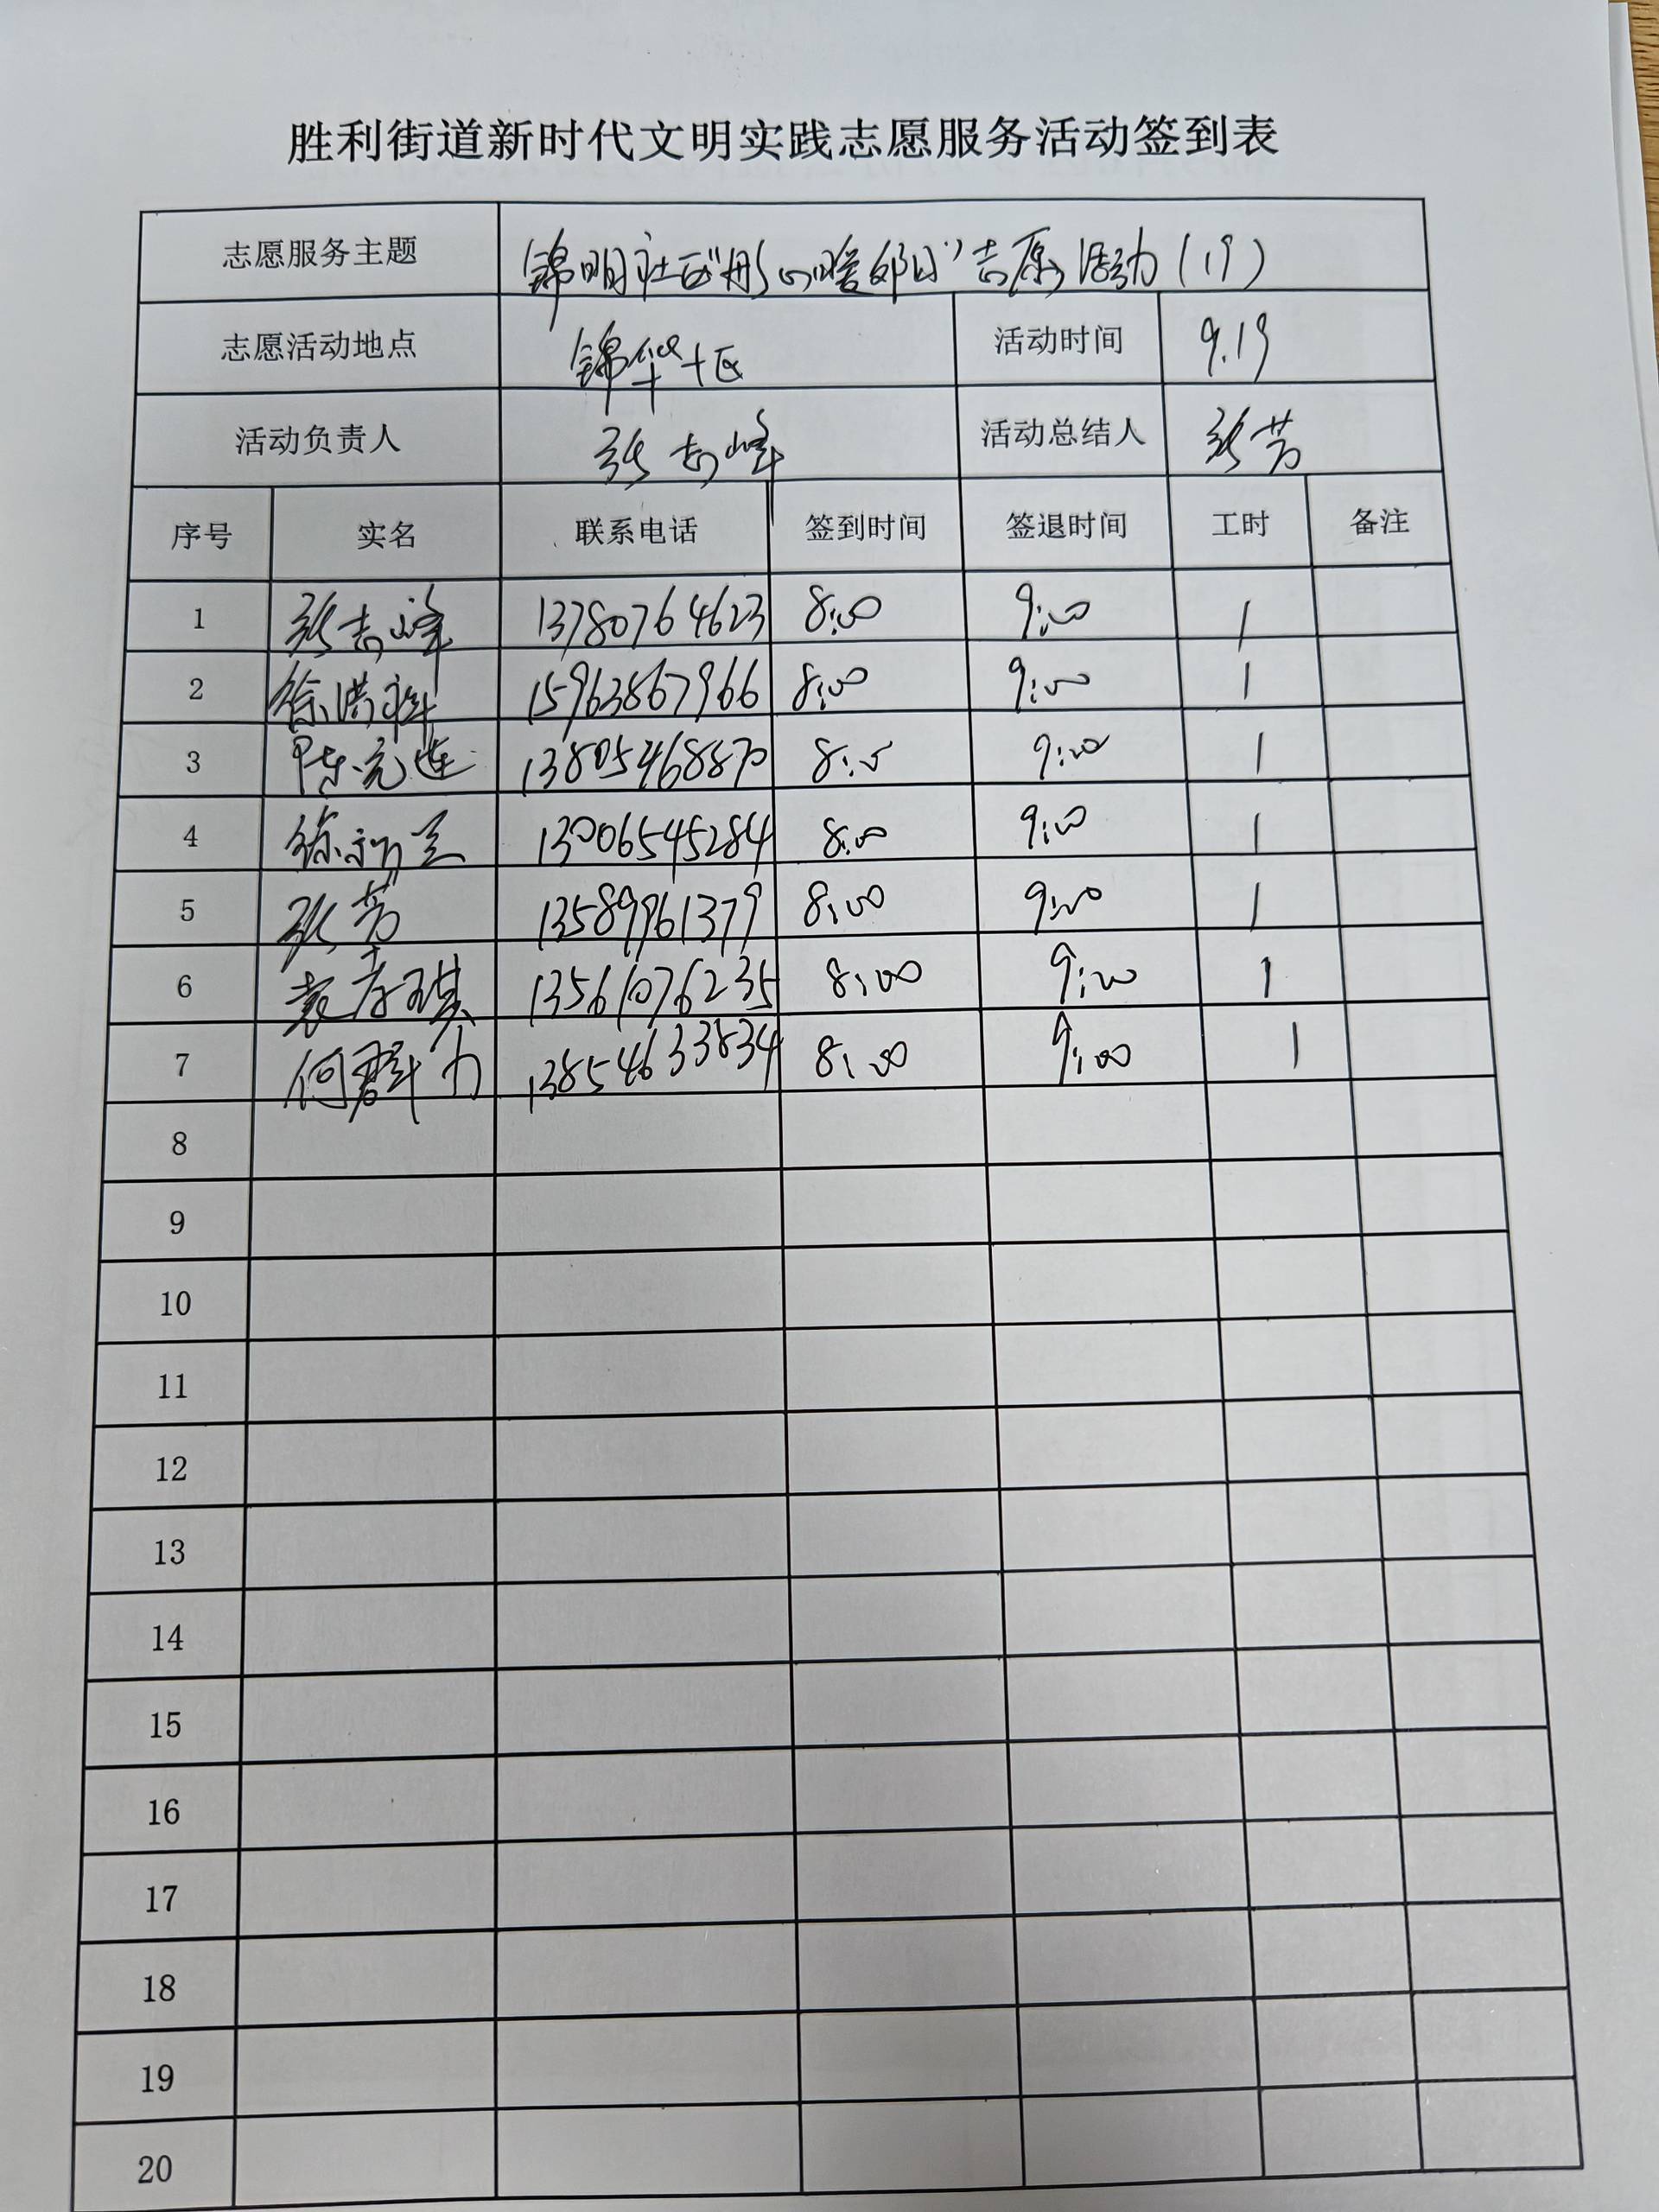 胜利街道新时代文明实践志愿服务活动签到表
志愿服务主题 锦明社区"彤心暖夕阳"志愿活动(19)
志愿活动地点 锦华十区 活动时间 9.19
活动负责人 张志峰 活动总结人 张芳
序号 实名 联系电话 签到时间 签退时间 工时 备注
1 张志峰 13780764623 8:00 9:00 1
2 徐洪祥 15963867966 8:00 9:00 1
3 陈克莲 13805468870 8:00 9:00 1
4 徐 兰 13006545284 8:00 9:00 1
5 张芳 13589961379 8:00 9:00 1
6 袁孝琪 13561076235 8:00 9:00 1
7 何群力 13854633834 8:00 9:00 1
8
9
10
11
12
13
14
15
16
17
18
19
20